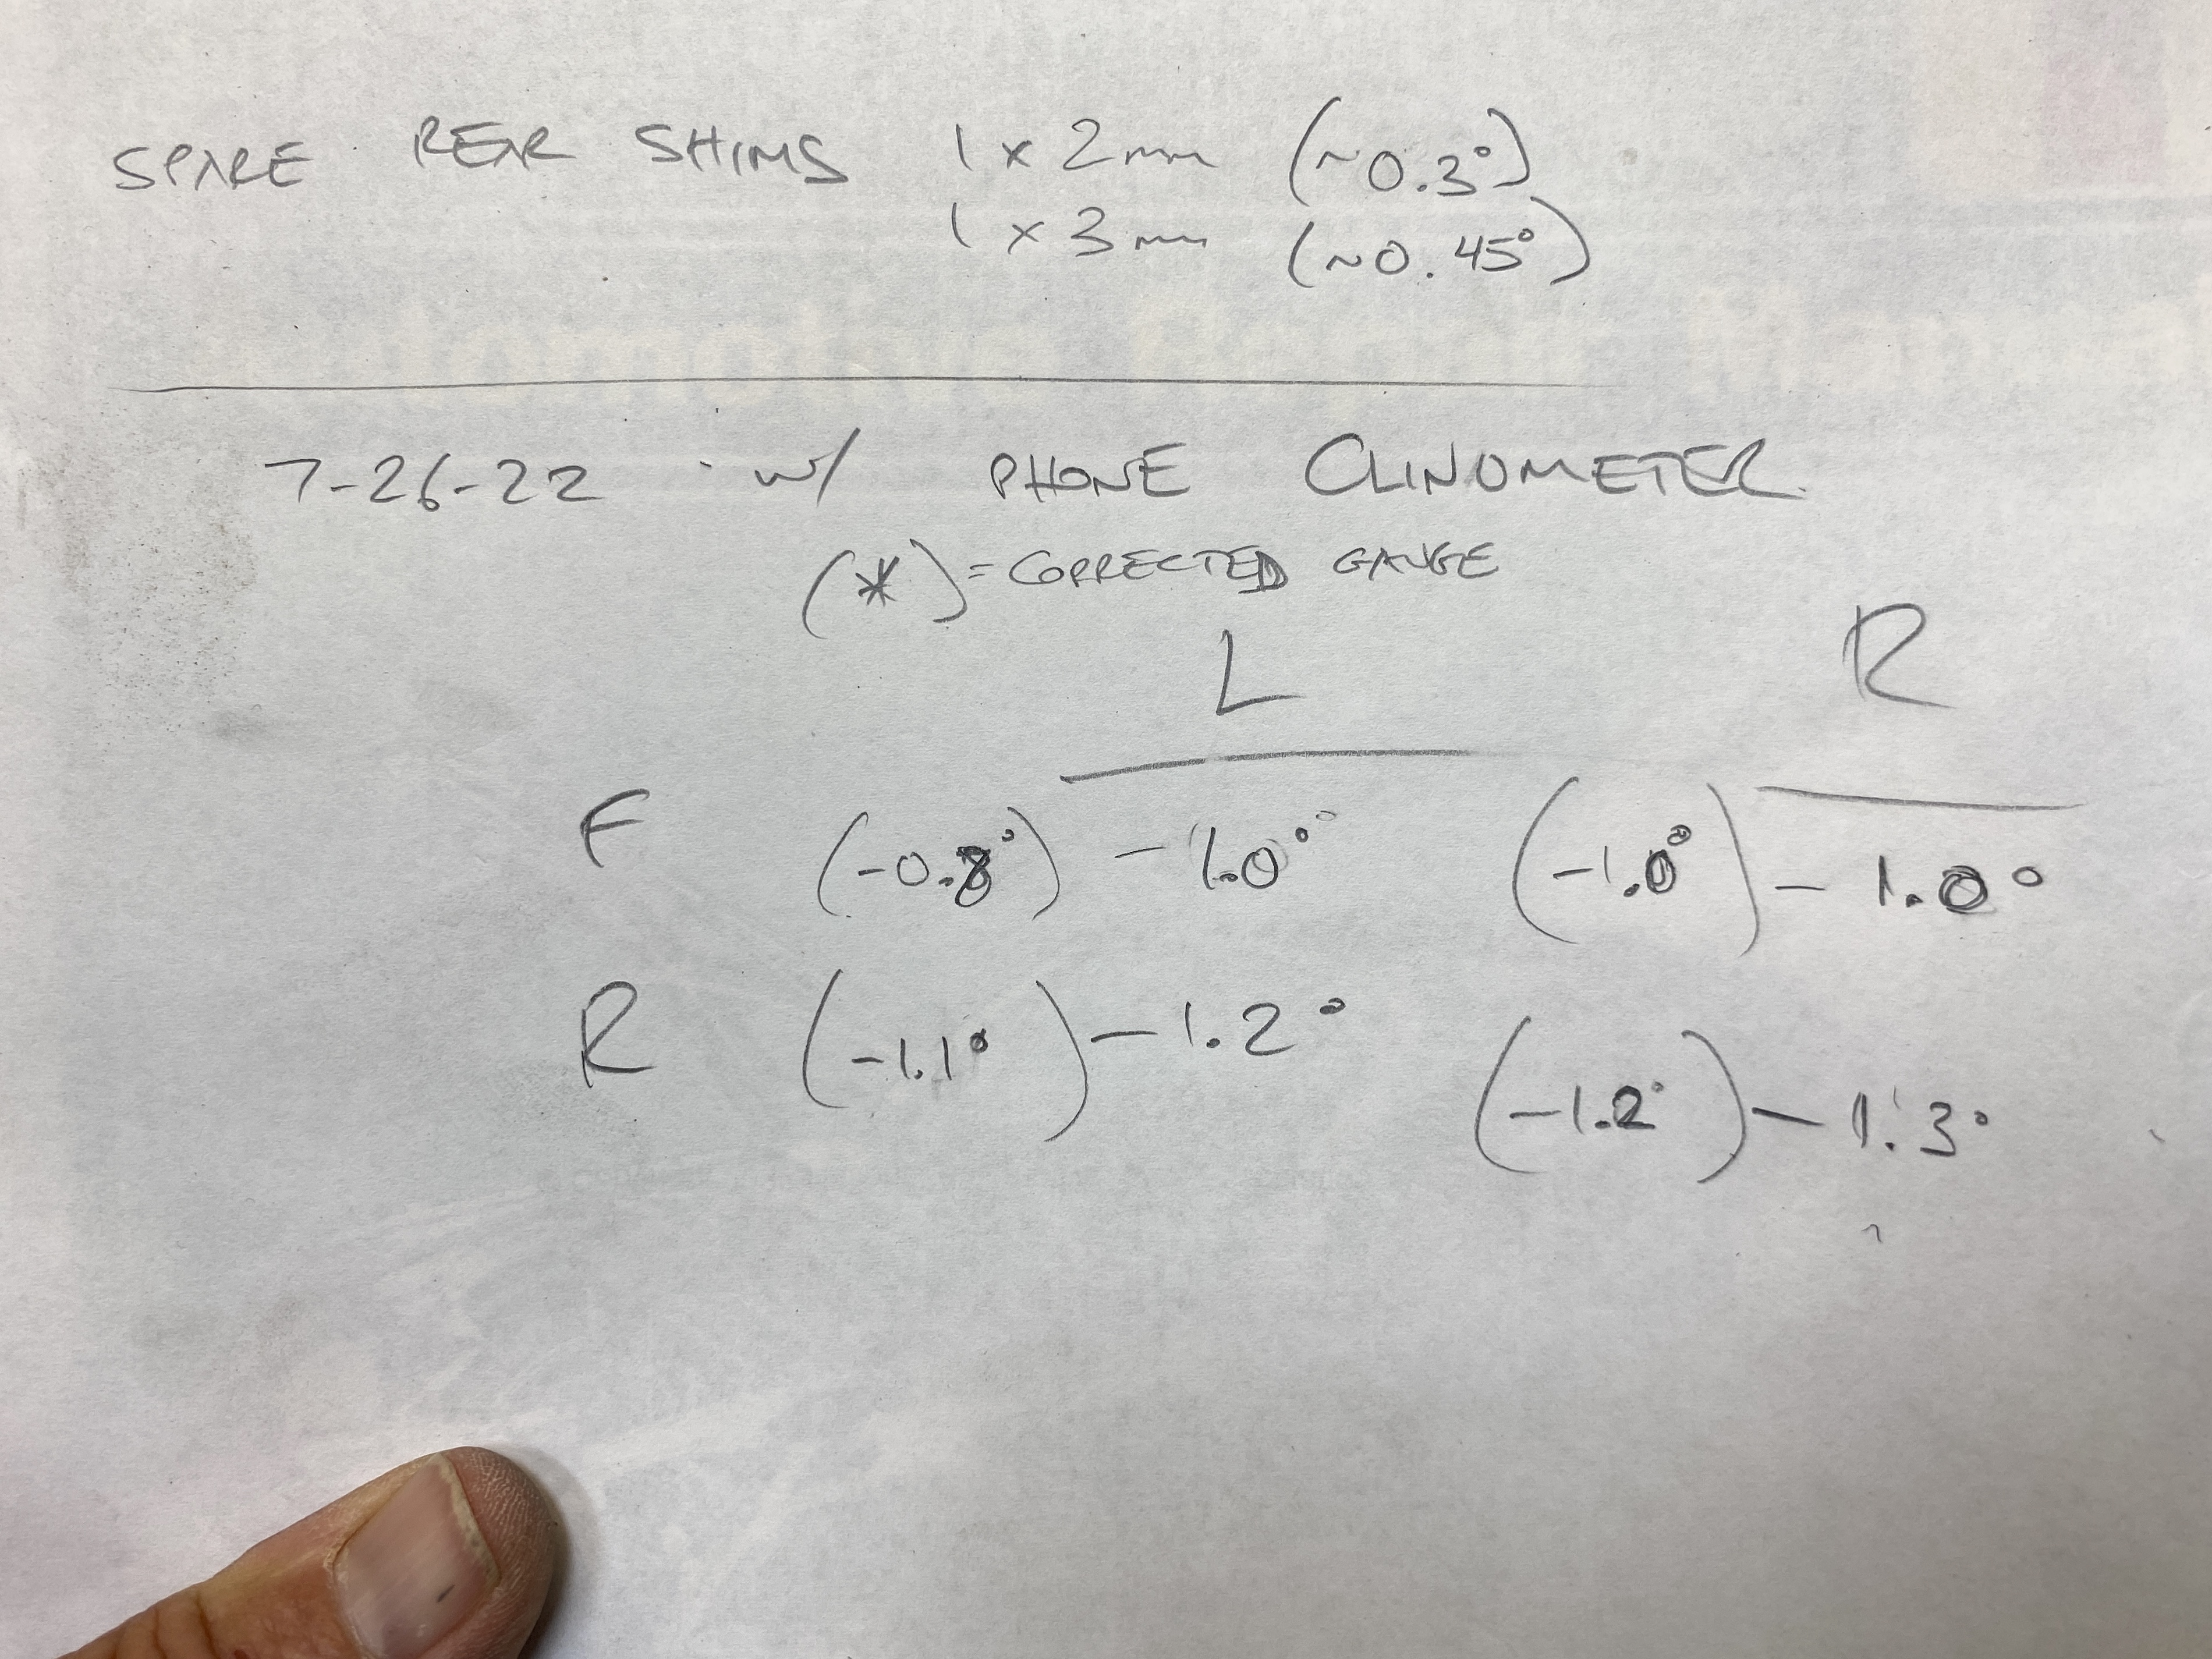 SPARE REAR SHIMS 1 x 2mm (~0.3°)
1 x 3mm (~0.45°)
7-26-22 · w/ PHONE CLINOMETER
(*) = CORRECTED GAUGE
L R
F (-0.8°) -1.0° (-1.0°) -1.0°
R (-1.1°) -1.2° (-1.2°) -1.3°